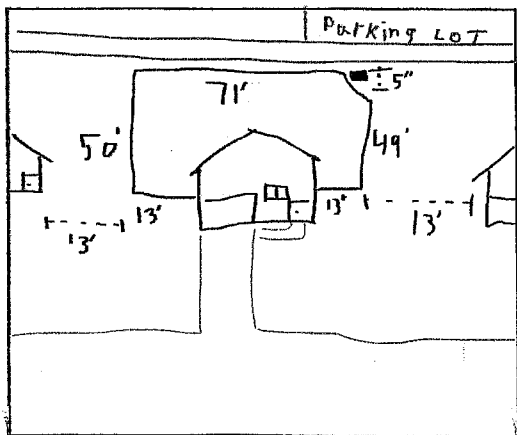 Parking LOT
71'
5"
50'
49'
13'
13'
13'
13'